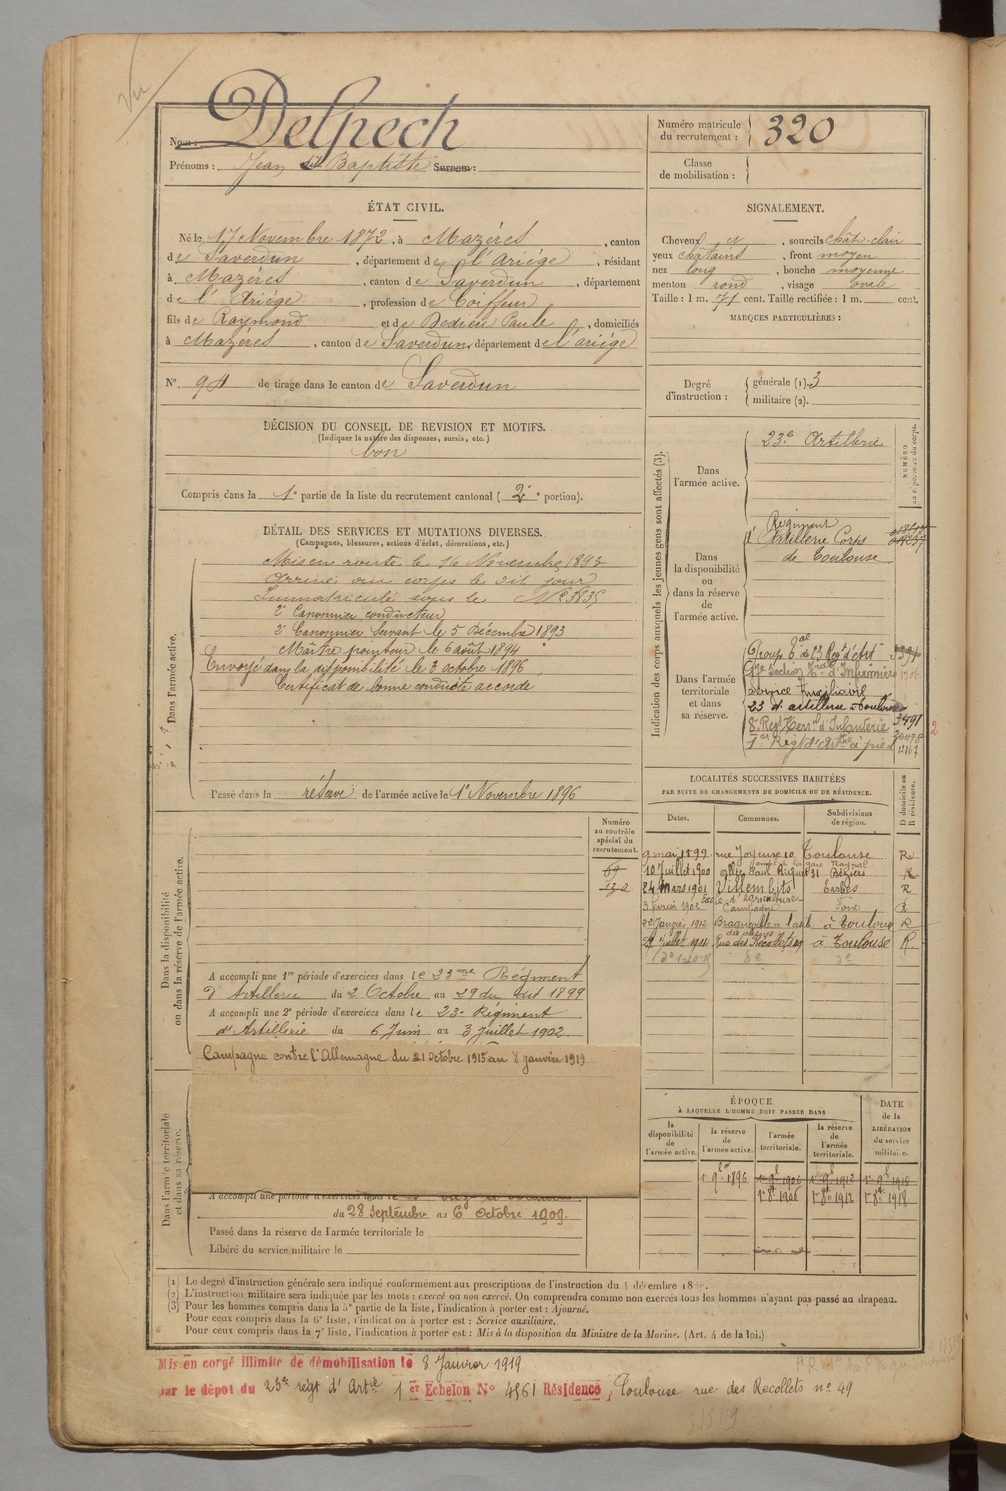 Vu
Nom : Delpech
Prénoms : Jean dit Baptiste Surnom :
Numéro matricule
du recrutement : 320
Classe
de mobilisation :
ÉTAT CIVIL.
Né le 17 Novembre 1872, à Mazéres, canton
de Saverdun, département de l'Ariége, résidant
à Mazéres, canton de Saverdun, département
de l'Ariége, profession de Coiffeur
fils de Raymond et de Dedieu Paule, domiciliés
à Mazéres, canton de Saverdun, département de l'ariége
N° 94 de tirage dans le canton de Saverdun
SIGNALEMENT.
Cheveux et, sourcils chât-clair
yeux châtains, front moyen
nez long, bouche moyenne
menton rond, visage ovale
Taille : 1 m. 71 cent. Taille rectifiée : 1 m. cent.
MARQUES PARTICULIÈRES :
Degré
d'instruction :
générale (1). 3
militaire (2).
DÉCISION DU CONSEIL DE REVISION ET MOTIFS.
(Indiquer la nature des dispenses, sursis, etc.)
bon
Compris dans la 1e partie de la liste du recrutement cantonal (2e portion).
DÉTAIL DES SERVICES ET MUTATIONS DIVERSES.
(Campagnes, blessures, actions d'éclat, décorations, etc.)
Dans l'armée active.
Mis en route le 16 Novembre 1893
Arrivé au corps le dit jour
Immatriculé sous le N° 3835
2e Canonnier conducteur
2e Canonnier Servant le 5 Décembre 1893
Maître pointeur le 6 août 1894
Envoyé dans la disponibilité le 3 octobre 1896
Certificat de bonne conduite accordé
Passé dans la réserve de l'armée active le 1er Novembre 1896
Indication des corps auxquels les jeunes gens sont affectés (3).
NUMÉRO
au répertoire du corps.
Dans
l'armée active.
23e Artillerie
Dans
la disponibilité
ou
dans la réserve
de
l'armée active.
Régiment
d'Artillerie Corps
de Toulouse
Dans l'armée
territoriale
et dans
sa réserve.
Groupe tal de 23 Régt d'Art
17e Section tale d'Infirmiers
Service Auxiliaire
23 d'artillerie Toulouse
3491
8e Regt terr. d'Infanterie
1er Régt d'Artie à pied
LOCALITÉS SUCCESSIVES HABITÉES
PAR SUITE DE CHANGEMENTS DE DOMICILE OU DE RÉSIDENCE.
Dates.
Communes.
Subdivisions
de région.
D domicile ou
R résidence.
9 mai 1899 rue Joyeuse 10 Toulouse R
10 Juillet 1900 allée Paul Riquet 31 Béziers R
24 Mars 1901 Villembits Tarbes R
3 fevrier 1902 Ecole d'agriculture Campagne Foix R
Janvier 1912 Braqueville à l'asile à Toulouse R
27 Juillet 1912 Rue des Récollets 49 à Toulouse R
Numéro
au contrôle
spécial du
recrutement.
Dans la disponibilité
ou dans la réserve de l'armée active.
A accompli une 1re période d'exercices dans le 23me Régiment
d'Artillerie du 2 Octobre au 29 du dit 1899
A accompli une 2e période d'exercices dans le 23e Régiment
d'Artillerie du 6 Juin au 3 Juillet 1902
Campagne contre l'Allemagne du 21 Octobre 1915 au 8 janvier 1919
Dans l'armée territoriale
et dans sa réserve.
A accompli une période d'exercices dans le
du 28 Septembre au 6 Octobre 1909.
Passé dans la réserve de l'armée territoriale le
Libéré du service militaire le
ÉPOQUE
À LAQUELLE L'HOMME DOIT PASSER DANS
DATE
de la
LIBÉRATION
du service
militaire.
la
disponibilité
de
l'armée active.
la réserve
de
l'armée active.
l'armée
territoriale.
la réserve
de
l'armée
territoriale.
1er 9bre 1896 1er 9bre 1906 1er 9bre 1912 1er 9bre 1918
1er 8bre 1906 1er 8bre 1912 1er 8bre 1918
(1) Le degré d'instruction générale sera indiqué conformément aux prescriptions de l'instruction du 4 décembre 18
(2) L'instruction militaire sera indiquée par les mots : exercé ou non exercé. On comprendra comme non exercés tous les hommes n'ayant pas passé au drapeau.
(3) Pour les hommes compris dans la 5e partie de la liste, l'indication à porter est : Ajourné.
Pour ceux compris dans la 6e liste, l'indication à porter est : Service auxiliaire.
Pour ceux compris dans la 7e liste, l'indication à porter est : Mis à la disposition du Ministre de la Marine. (Art. 4 de la loi.)
Mis en congé illimité de démobilisation le 8 Janvier 1919
par le dépot du 23e régt d'Artie 1er Echelon N° 4561 Résidence, Toulouse rue des Recollets n° 49